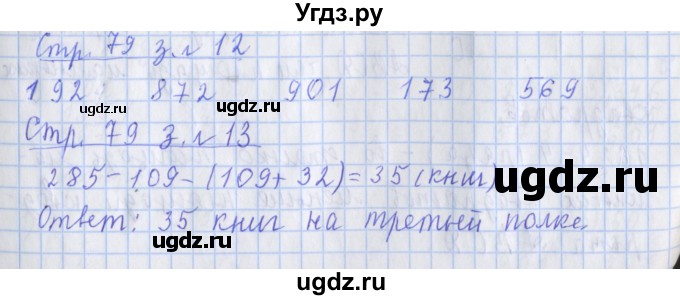 Угдз.ру
Стр. 79 з. № 12
192 872 901 173 569
угдz.ru
угдz.ru
Стр. 79 з. № 13
угдz.ru
285 - 109 - (109 + 32) = 35 (книг)
Ответ: 35 книг на третьей полке.
угдz.ru
угдz.ru